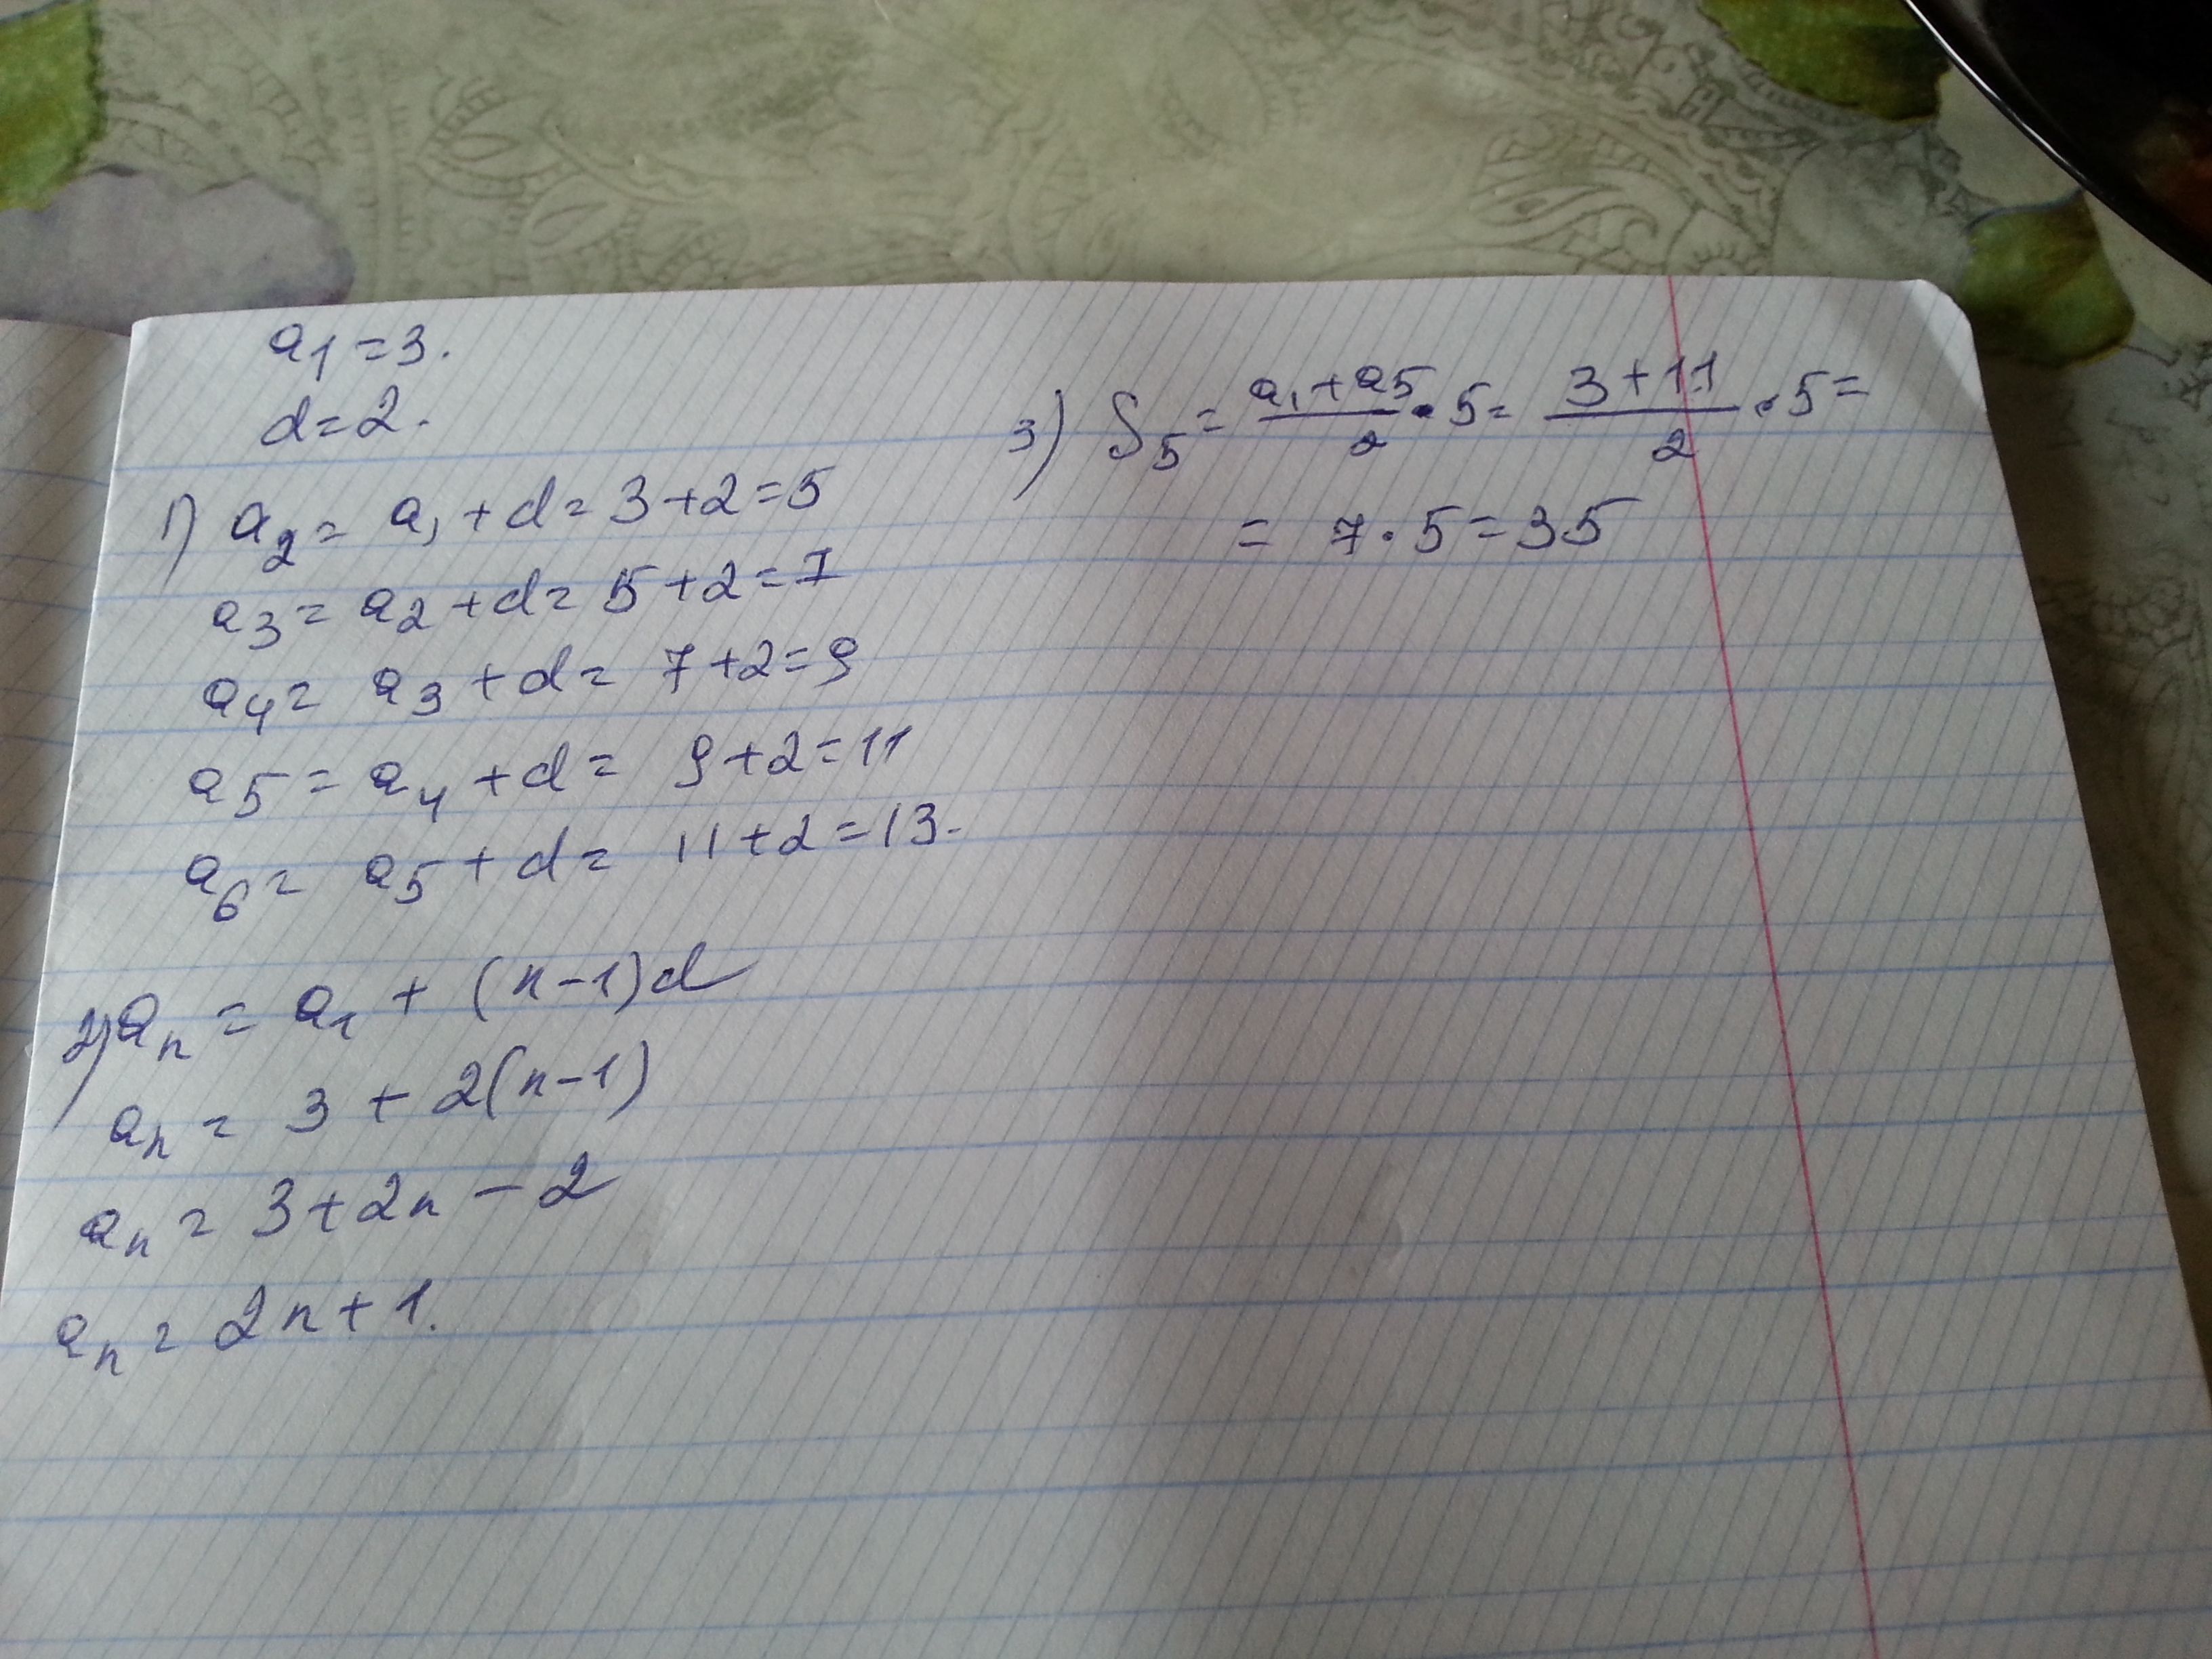 a₁ = 3.
d = 2.
1) a₂ = a₁ + d = 3 + 2 = 5
a₃ = a₂ + d = 5 + 2 = 7
a₄ = a₃ + d = 7 + 2 = 9
a₅ = a₄ + d = 9 + 2 = 11
a₆ = a₅ + d = 11 + 2 = 13.
2) aₙ = a₁ + (n - 1)d
aₙ = 3 + 2(n - 1)
aₙ = 3 + 2n - 2
aₙ = 2n + 1.
3) S₅ = (a₁ + a₅)/2 · 5 = (3 + 11)/2 · 5 =
= 7 · 5 = 35